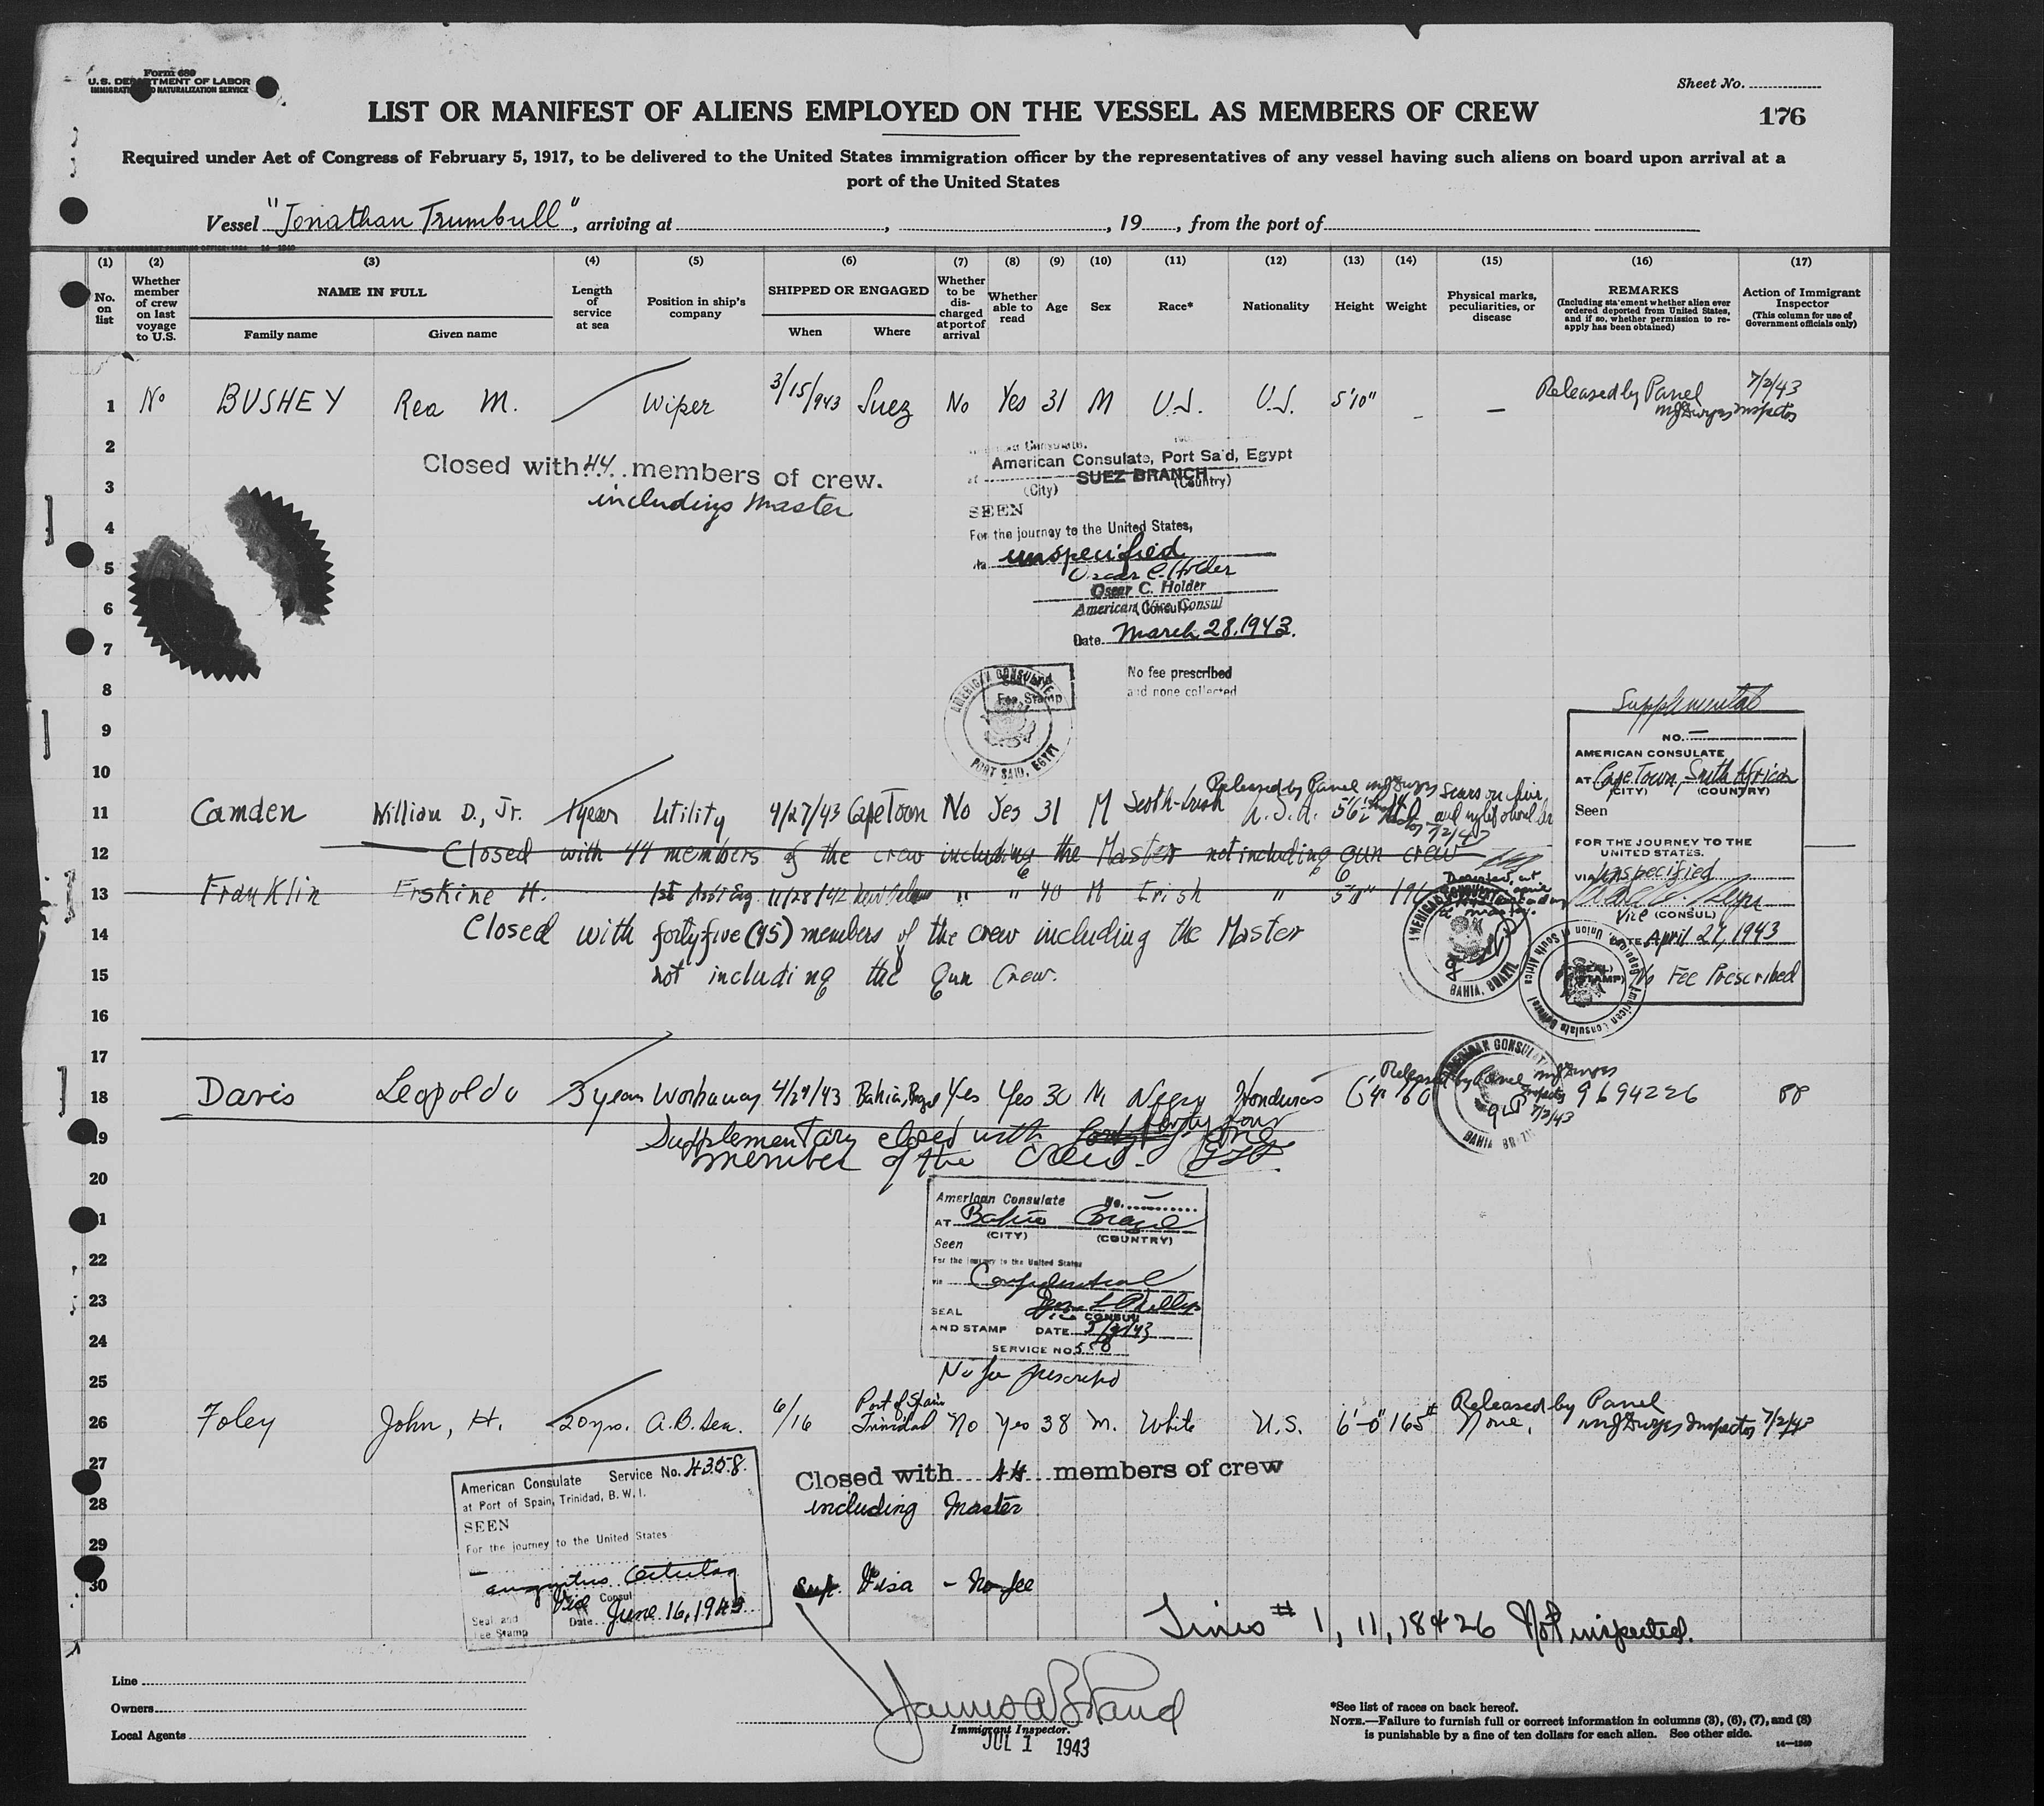 Form 689
U.S. DEPARTMENT OF LABOR
IMMIGRATION AND NATURALIZATION SERVICE
Sheet No.
LIST OR MANIFEST OF ALIENS EMPLOYED ON THE VESSEL AS MEMBERS OF CREW
176
Required under Act of Congress of February 5, 1917, to be delivered to the United States immigration officer by the representatives of any vessel having such aliens on board upon arrival at a
port of the United States
Vessel "Jonathan Trumbull", arriving at , , 19 , from the port of
(1) (2) (3) (4) (5) (6) (7) (8) (9) (10) (11) (12) (13) (14) (15) (16) (17)
No. on list
Whether member of crew on last voyage to U.S.
NAME IN FULL
Family name Given name
Length of service at sea
Position in ship's company
SHIPPED OR ENGAGED
When Where
Whether to be discharged at port of arrival
Whether able to read
Age
Sex
Race*
Nationality
Height
Weight
Physical marks, peculiarities, or disease
REMARKS
(Including statement whether alien ever ordered deported from United States, and if so, whether permission to reapply has been obtained)
Action of Immigrant Inspector
(This column for use of Government officials only)
1 No BUSHEY Rea M. Wiper 3/15/943 Suez No Yes 31 M U.S. U.S. 5'10" - - Released by Panel 7/2/43
Inspector
2
Closed with 44 members of crew.
including Master
3
4
5
6
7
8
9
10
American Consulate, Port Said, Egypt
SUEZ BRANCH
(City) (Country)
SEEN
For the journey to the United States,
unspecified
Oscar C. Holder
Oscar C. Holder
American Vice Consul
Date March 28, 1943.
No fee prescribed
and none collected
Seal and
Fee Stamp
AMERICAN CONSULATE
PORT SAID, EGYPT
Supplemental
NO. -
AMERICAN CONSULATE
AT Cape Town, South Africa
(CITY) (COUNTRY)
Seen
FOR THE JOURNEY TO THE
UNITED STATES.
VIA Unspecified
Vice (CONSUL)
DATE April 27, 1943
(SEAL)
(STAMP) No Fee Prescribed
American Consulate General
Capetown, Union of South Africa
Released by Panel
11 Camden William D., Jr. 1 year Utility 4/27/43 Cape Town No Yes 31 M Scotch-Irish U.S.A. 5'6½" Scars on
7/2/43
12 Closed with 44 members of the crew including the Master not including gun crew
13 Franklin Erskine H. 1st Asst Eng. 11/28/42 " " 40 M Irish " 5'11"
14 Closed with forty five (45) members of the crew including the Master
15 not including the Gun Crew.
AMERICAN CONSULATE
BAHIA, BRAZIL
16
17
Released by Panel
18 Davis Leopoldo 3 year Workaway 4/29/43 Bahia, Brazil Yes Yes 30 M Negro Honduras 6'4" 160 9694226
7/2/43
AMERICAN CONSULATE
BAHIA BRAZIL
19 Supplementary closed with forty four
member of the crew.
20
21
22
23
24
25
American Consulate No. -
AT Bahia Brazil
(CITY) (COUNTRY)
Seen
For the journey to the United States
via Confidential
SEAL Vice CONSUL
AND STAMP DATE
SERVICE NO. 558
No fee prescribed
Released by Panel
26 Foley John, H. 20 yrs. A.B. Sea. 6/16 Port of Spain Trinidad No Yes 38 M. White U.S. 6'-0" 165# None. Inspector 7/2/43
27
28
29
30
American Consulate Service No. 4358.
at Port of Spain, Trinidad, B.W.I.
SEEN
For the journey to the United States
Vice Consul
Seal and
Fee Stamp
Date June 16, 1943
Closed with 44 members of crew
including Master
Sup. Visa - No fee
Lines # 1, 11, 18 & 26 Not inspected.
Line
Owners
Local Agents
Immigrant Inspector.
JUL 1 1943
*See list of races on back hereof.
NOTE.—Failure to furnish full or correct information in columns (3), (6), (7), and (8)
is punishable by a fine of ten dollars for each alien. See other side.
14—1240